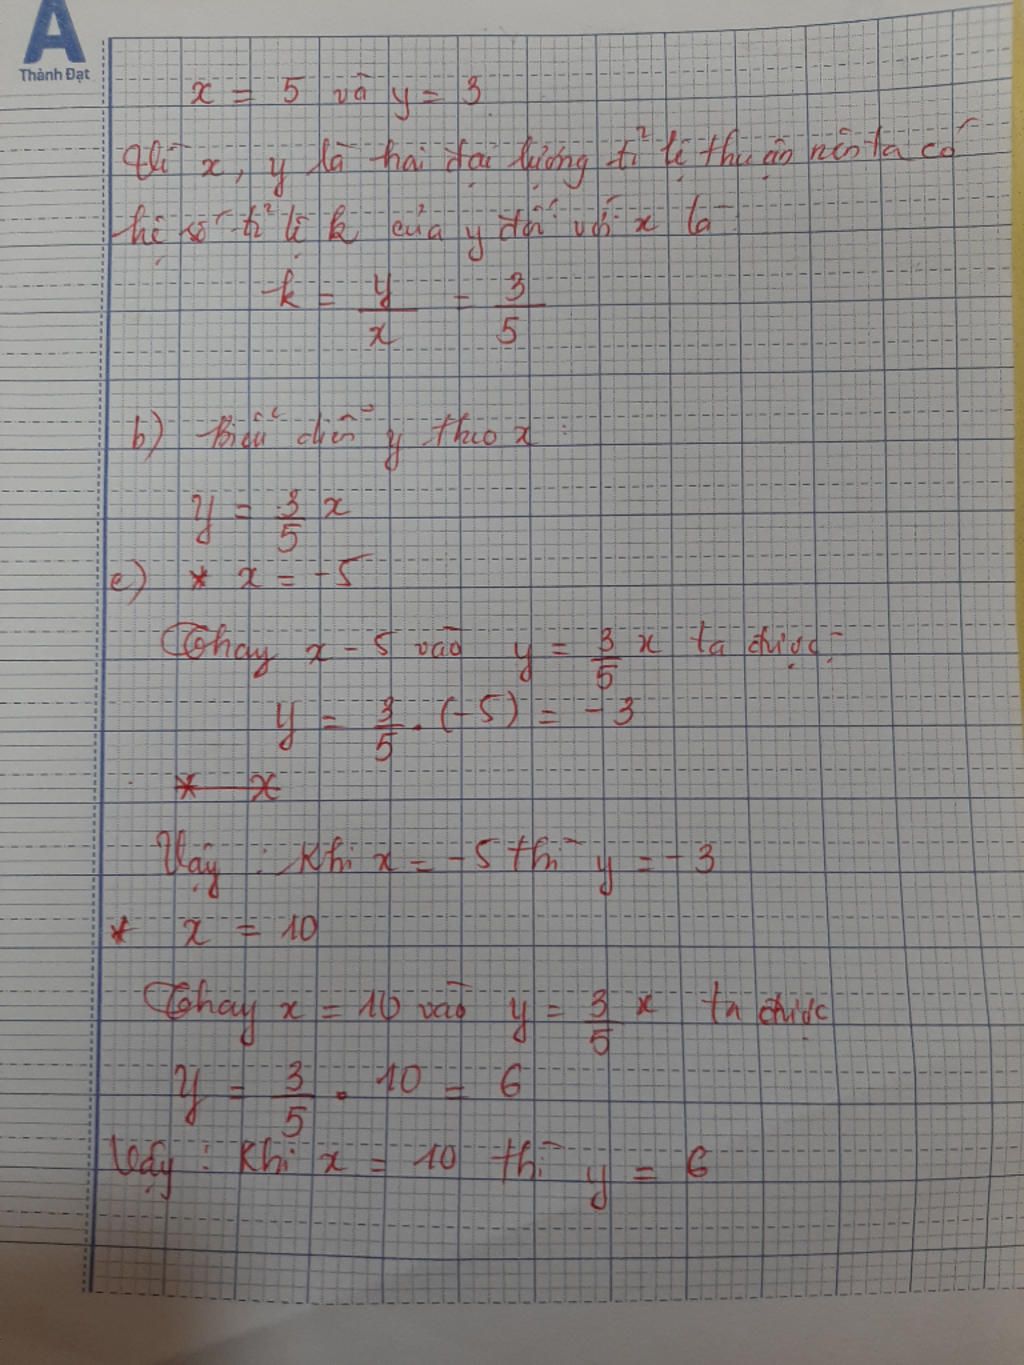 A
Thành Đạt
x = 5 và y = 3
Vì x, y là hai đại lượng tỉ lệ thuận nên ta có
hệ số tỉ lệ k của y đối với x là
k = y/x = 3/5
b) Biểu diễn y theo x :
y = 3/5 x
c) * x = -5
Thay x - 5 vào y = 3/5 x ta được :
y = 3/5 . (-5) = -3
* x
Vậy : Khi x = -5 thì y = -3
* x = 10
Thay x = 10 vào y = 3/5 x ta được
y = 3/5 . 10 = 6
Vậy : Khi x = 10 thì y = 6